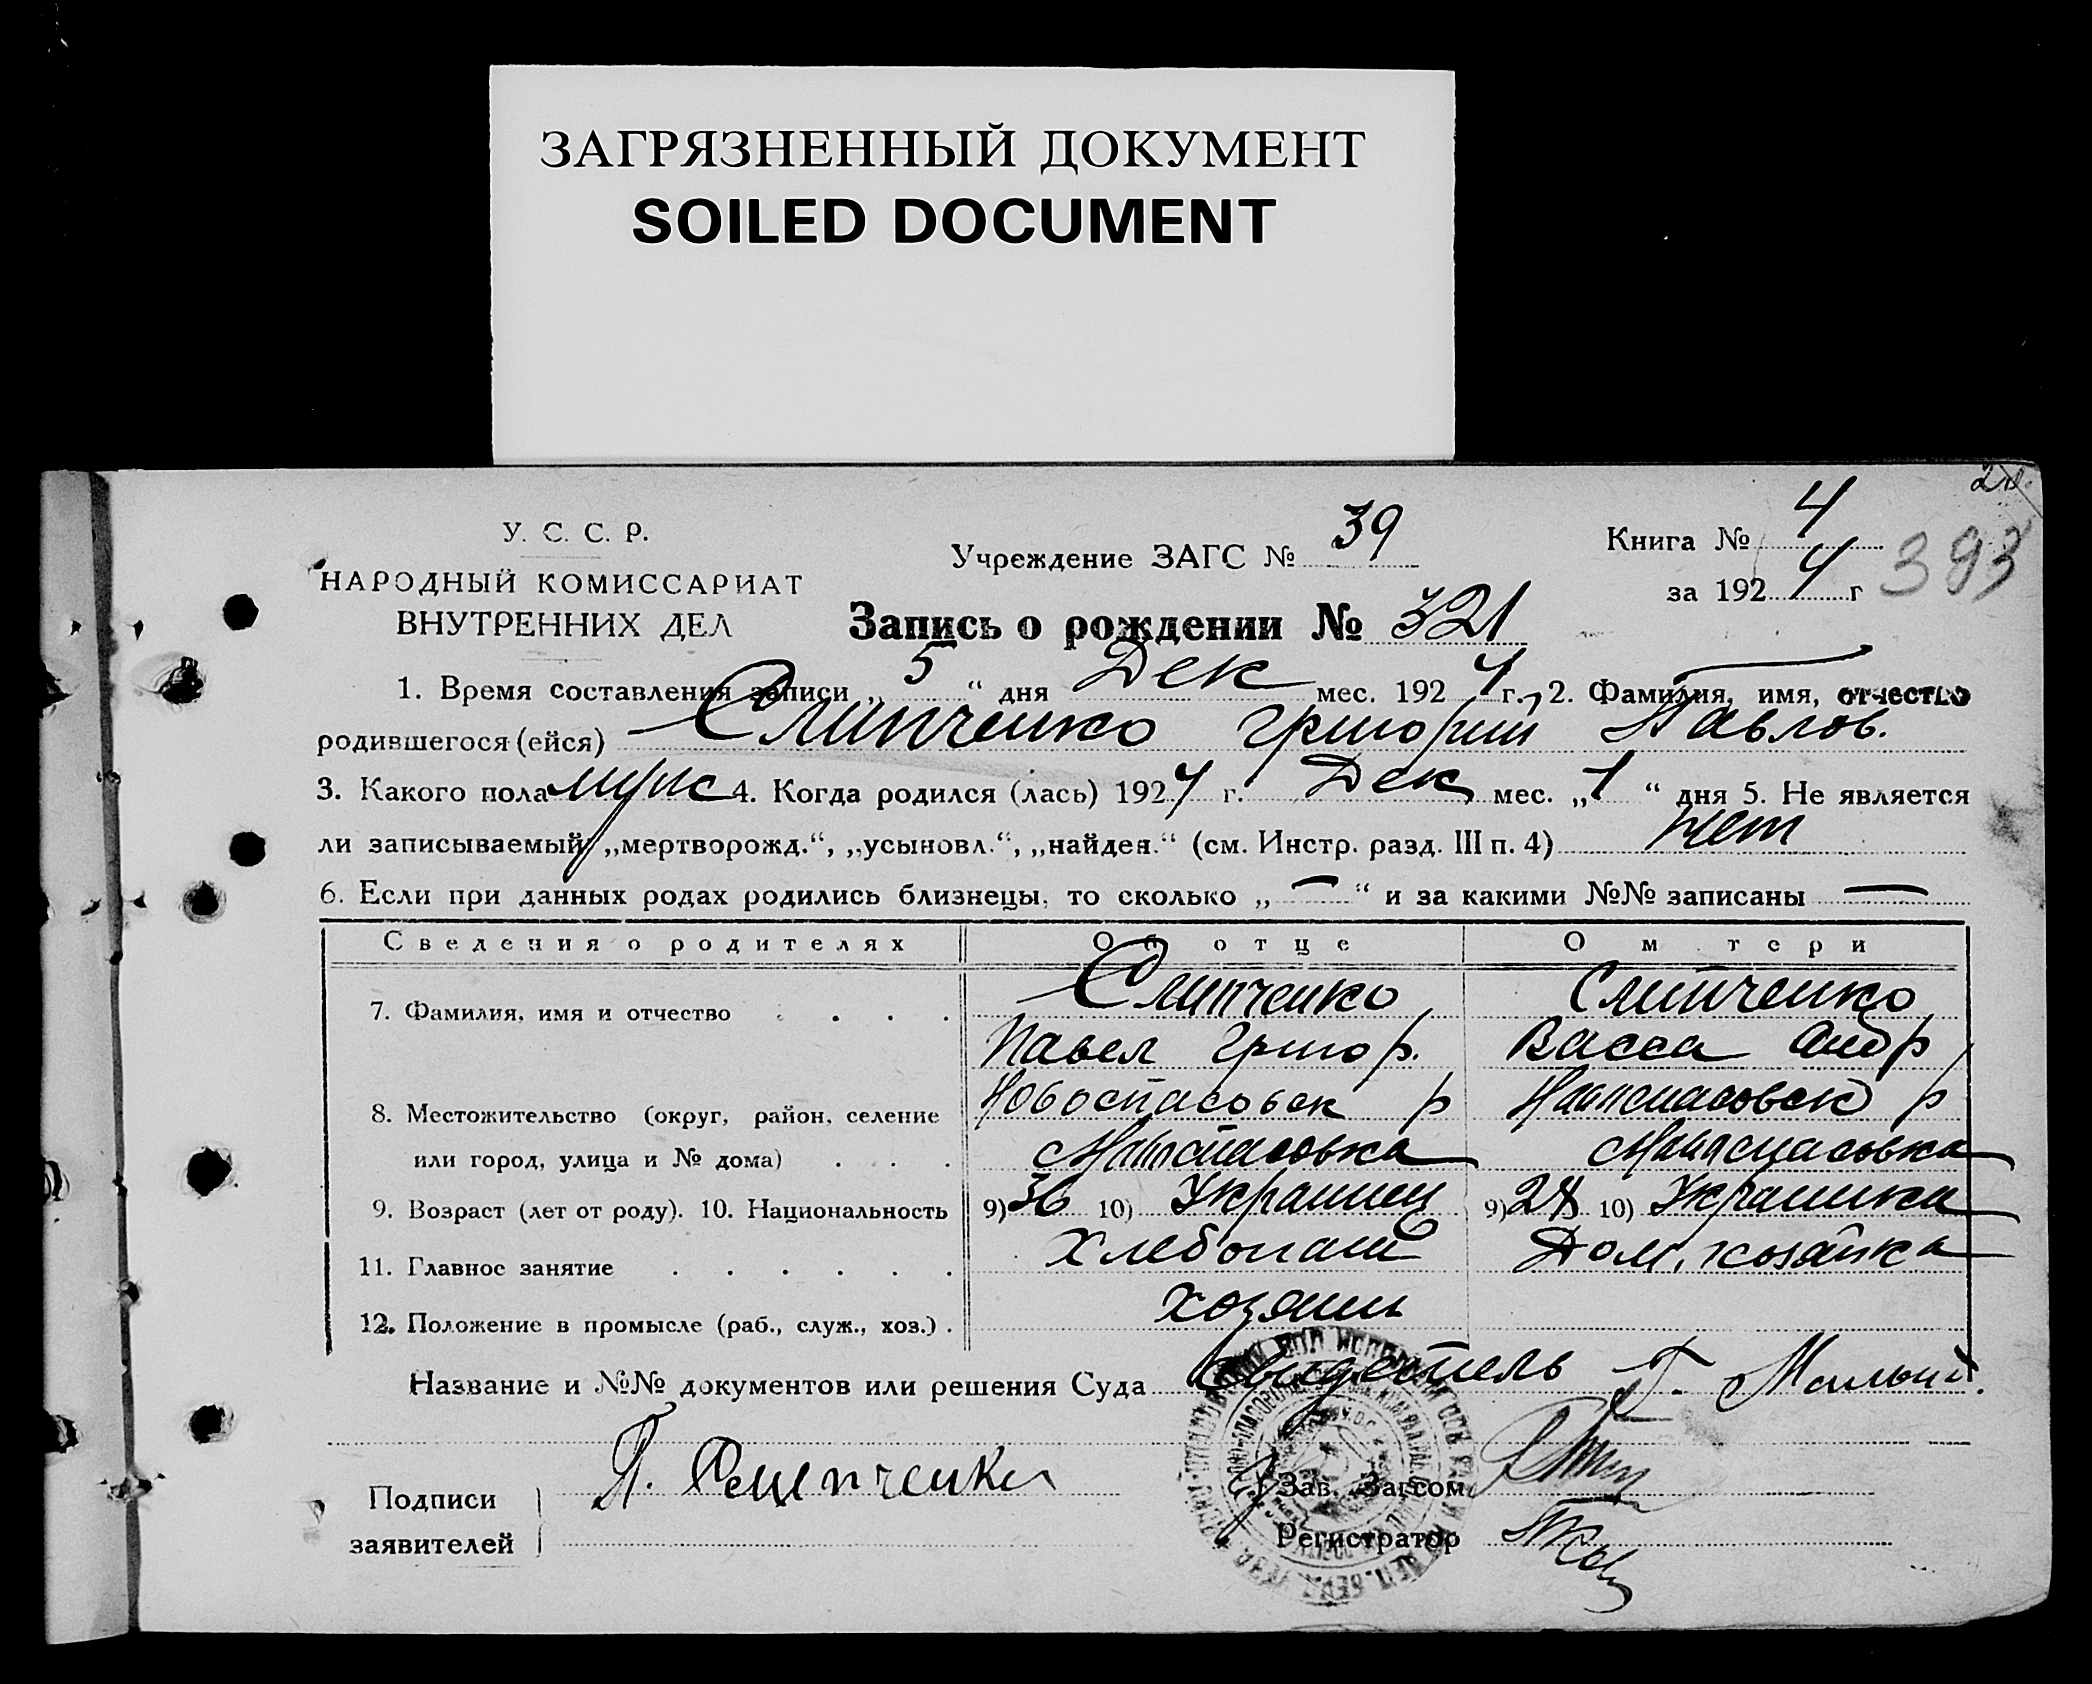 ЗАГРЯЗНЕННЫЙ ДОКУМЕНТ
SOILED DOCUMENT
У. С. С. Р.
НАРОДНЫЙ КОМИССАРИАТ
ВНУТРЕННИХ ДЕЛ
Учреждение ЗАГС № 39
Книга № 4
за 1924 г
393
Запись о рождении № 321
1. Время составления записи „ 5 “ дня Дек мес. 1924 г. 2. Фамилия, имя, отчество
родившегося (ейся) Слипченко Григорий Павлов.
3. Какого пола муж 4. Когда родился (лась) 1924 г. Дек мес. „ 1 “ дня 5. Не является
ли записываемый „мертворожд.“, „усыновл.“, „найден.“ (см. Инстр. разд. III п. 4) Нет
6. Если при данных родах родились близнецы, то сколько „ — “ и за какими №№ записаны —
Сведения о родителях Об отце О м тери
7. Фамилия, имя и отчество . . . . Слипченко Слипченко
Павел Григор. Васса Андр
8. Местожительство (округ, район, селение Новоспасовск р р
или город, улица и № дома) . . .
9. Возраст (лет от роду). 10. Национальность 9) 36 10) Украинец 9) 10) Украинка
11. Главное занятие . . . . . . Хлебопаш Дом. хозяйка
12. Положение в промысле (раб., служ., хоз.) . хозяин
Название и №№ документов или решения Суда Свидетель Г. Малый.
Подписи П.
заявителей
Зав. Загсом
Регистратор